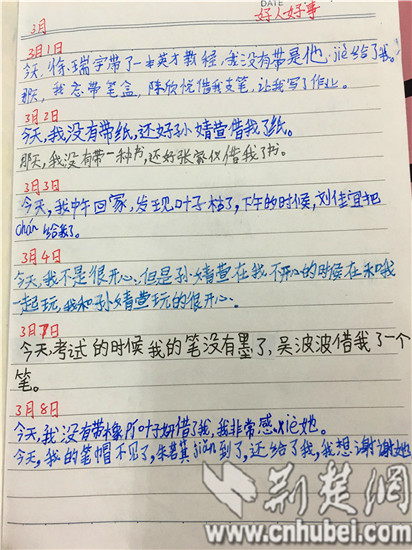 DATE
好人好事
3月
3月1日
今天,徐瑞宇带了一本英才教程,我没有带是他jiè给了我。
那天,我忘带笔盒,陈欣悦借我支笔,让我写作业。
3月2日
今天,我没有带纸,还好孙婧萱借我了纸。
那天,我没有带一种书,还好张家仪借我了书。
3月3日
今天,我中午回家,发现叶子枯了,下午的时候,刘佳宜把
chán给我了。
3月4日
今天,我不是很开心,但是孙婧萱在我不开心的时候在和我
一起玩,我和孙婧萱玩的很开心。
3月7日
今天,考试的时候我的笔没有墨了,吴波波借我了一个
笔。
3月8日
今天,我没有带橡pí叶子妍借了我,我非常感xiè她。
今天,我的笔帽不见了,朱茗萁jiǎn到了,还给了我,我想谢谢她
荆楚网
www.cnhubei.com